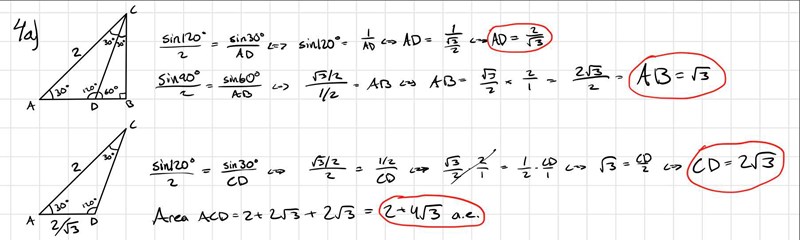 4a)
C
2 30° 30°
30° 120° 60°
A D B
sin120°/2 = sin30°/AD ⇔ sin120° = 1/AD ⇔ AD = 1/(√3/2) ⇔ AD = 2/√3
sin90°/2 = sin60°/AB ⇔ (√3/2)/(1/2) = AB ⇔ AB = √3/2 × 2/1 = 2√3/2 = AB = √3
C
2 30°
30° 120°
A D
2/√3
sin120°/2 = sin30/CD ⇔ (√3/2)/2 = (1/2)/CD ⇔ √3/2 · 2/1 = 1/2 · CD/1 ⇔ √3 = CD/2 ⇔ CD = 2√3
Area ACD = 2 + 2√3 + 2√3 = 2 + 4√3 a.e.